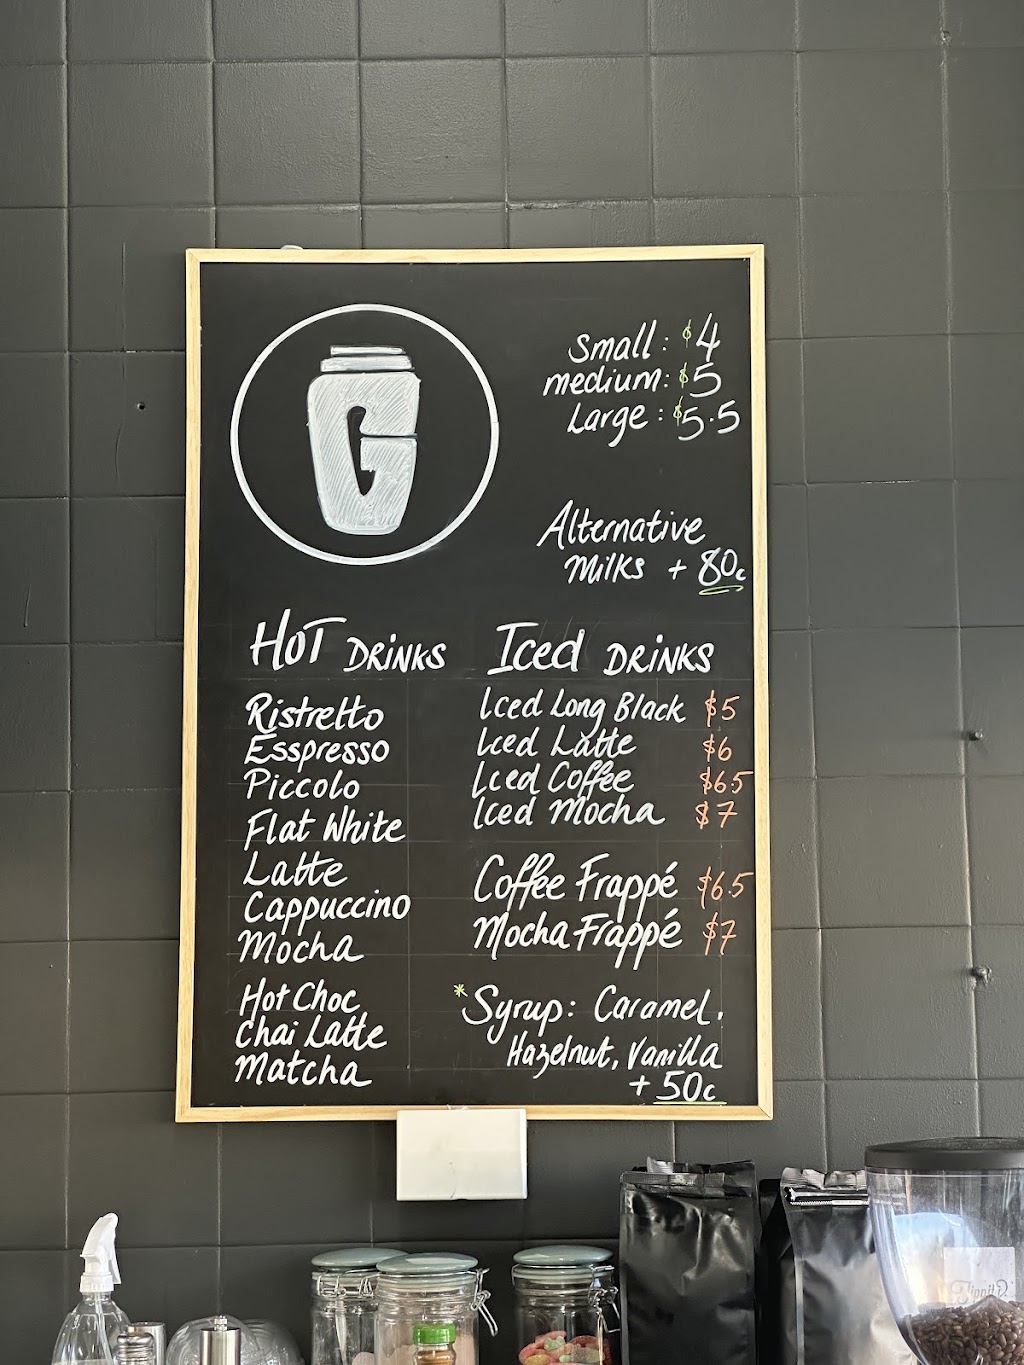 G
small: $4
medium: $5
Large: $5.5
Alternative
Milks + 80c
HOT DRiNKS
Ristretto
Esspresso
Piccolo
Flat White
Latte
Cappuccino
Mocha
Hot Choc
Chai Latte
Matcha
Iced DRiNKS
Iced Long Black $5
Iced Latte $6
Iced Coffee $6.5
Iced Mocha $7
Coffee Frappé $6.5
Mocha Frappé $7
*Syrup: Caramel,
Hazelnut, Vanilla
+ 50c